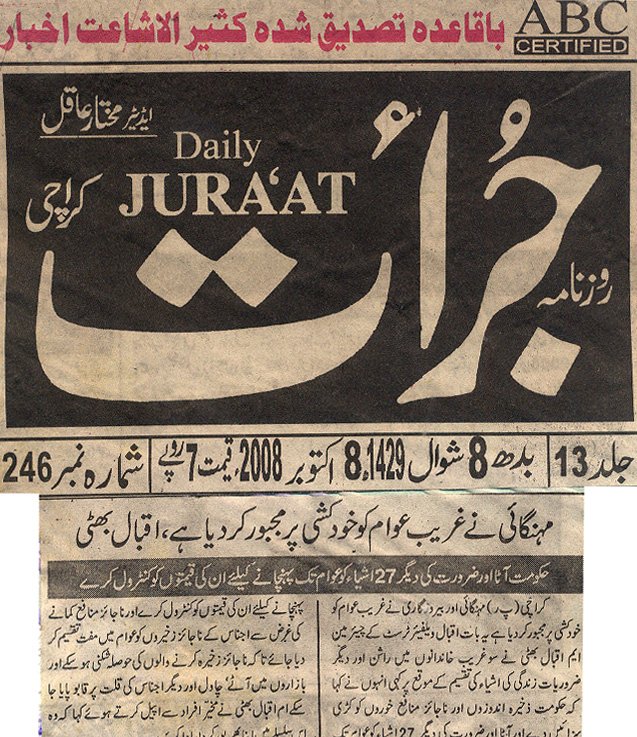 باقاعدہ تصدیق شدہ کثیر الاشاعت اخبار
ABC
CERTIFIED
ایڈیٹر مختار عاقل
Daily
JURA'AT
کراچی
روزنامہ
جرأت
جلد 13 بدھ 8 شوال 1429ء 8 اکتوبر 2008ء قیمت 7 روپے شمارہ نمبر 246
مہنگائی نے غریب عوام کو خودکشی پر مجبور کر دیا ہے، اقبال بھٹی
حکومت آٹا اور ضرورت کی دیگر 27 اشیاء کو عوام تک پہنچانے کیلئے ان کی قیمتوں کو کنٹرول کرے
کراچی (پ ر) مہنگائی اور بیروزگاری نے غریب عوام کو
خودکشی پر مجبور کر دیا ہے یہ بات اقبال ویلفیئر ٹرسٹ کے چیئرمین
ایم اقبال بھٹی نے سو غریب خاندانوں میں راشن اور دیگر
ضروریات زندگی کی اشیاء کی تقسیم کے موقع پر کہی انہوں نے کہا
کہ حکومت ذخیرہ اندوزوں اور ناجائز منافع خوروں کو کڑی
سزائیں دے اور آٹا اور ضرورت کی دیگر 27 اشیاء کو عوام تک
پہنچانے کیلئے ان کی قیمتوں کو کنٹرول کرے اور ناجائز منافع کمانے
کی غرض سے اجناس کے ناجائز ذخیروں کو عوام میں مفت تقسیم کر
دیا جائے تاکہ ناجائز ذخیرہ کرنے والوں کی حوصلہ شکنی ہو سکے اور
بازاروں میں آٹے' چاول اور دیگر اجناس کی قلت پر قابو پایا جا
سکے ام اقبال بھٹی نے مخیر افراد سے اپیل کرتے ہوئے کہا کہ وہ
اس سلسلے میں اپنا